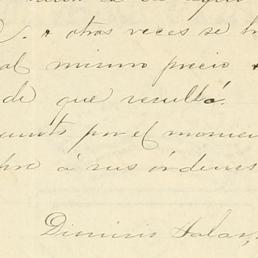 otras veces se h
al mismo precio
de que resultó.
por el momen
á sus órdenes
Dionisio Salaz